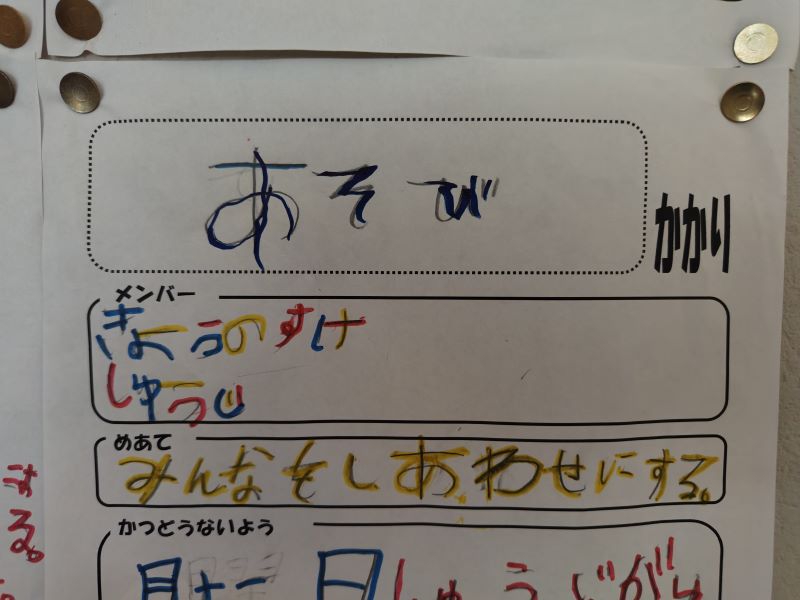 あそび かかり
メンバー
きょうのすけ
しゅうじ
めあて
みんなをしあわせにする。
かつどうないよう
日しゅうじが
する。